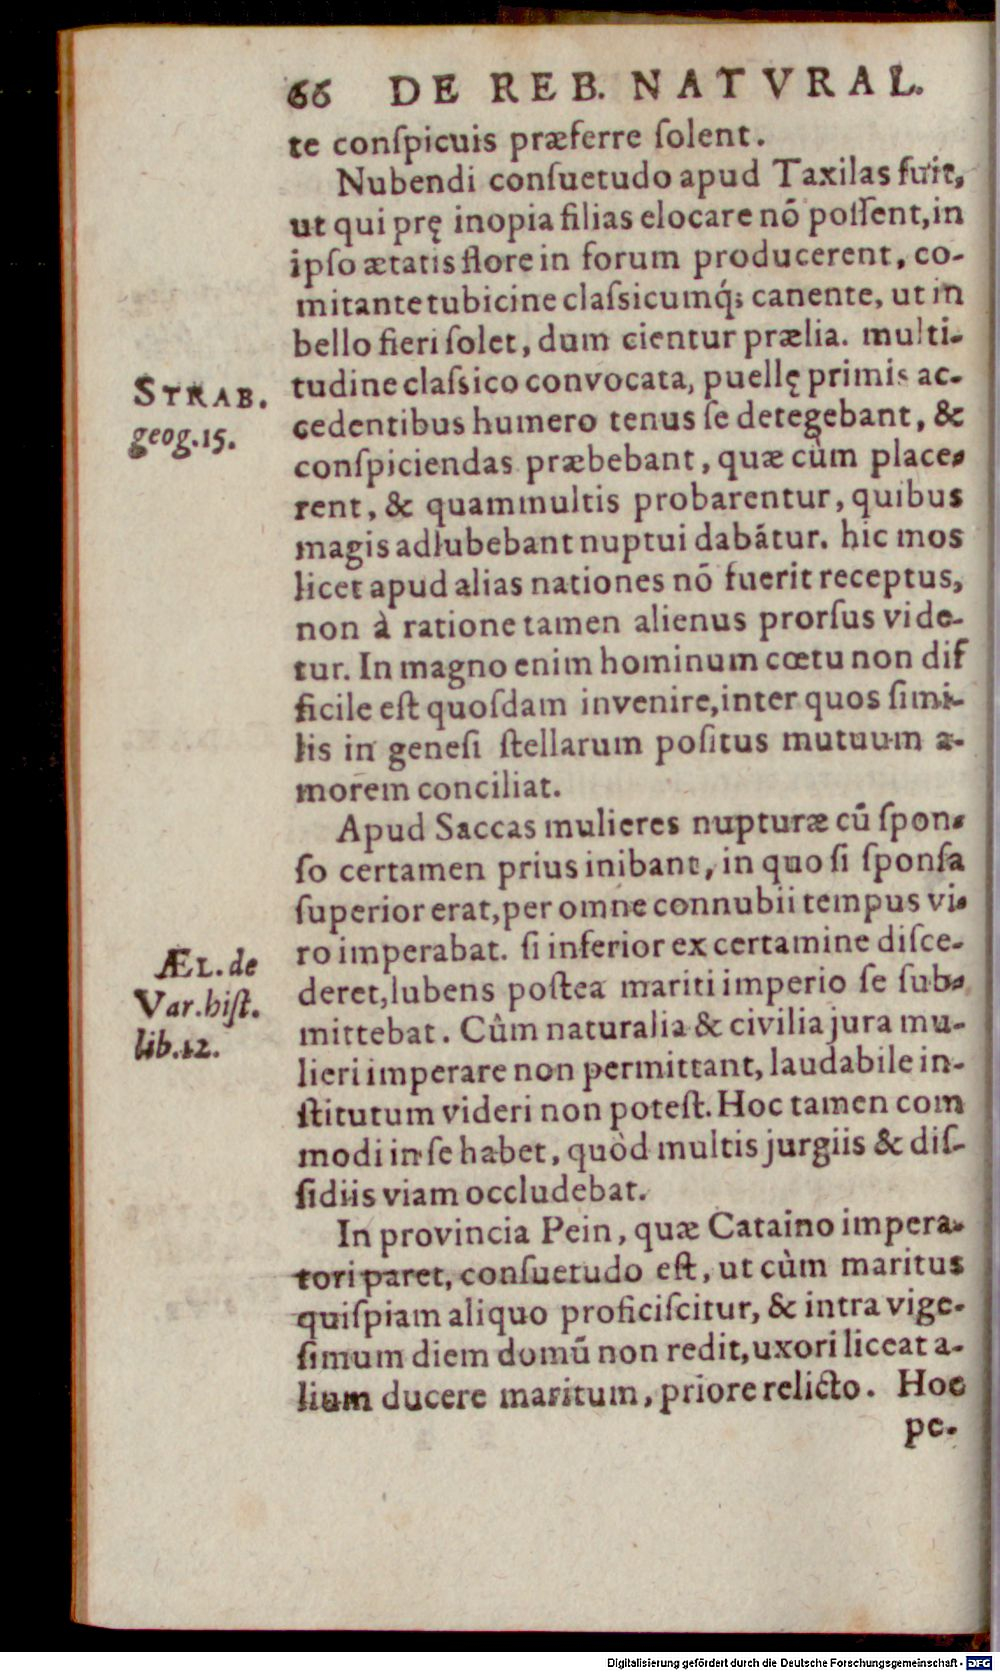 66 DE REB. NATVRAL.
te conſpicuis præferre ſolent.
Nubendi conſuetudo apud Taxilas fuit,
ut qui prę inopia filias elocare nō poſſent, in
ipſo ætatis flore in forum producerent, co-
mitante tubicine claſsicumq́; canente, ut in
bello fieri ſolet, dum cientur prælia. multi-
tudine claſsico convocata, puellę primis ac-
STRAB.
cedentibus humero tenus ſe detegebant, &
geog. 15.
conſpiciendas præbebant, quæ cùm place-
rent, & quammultis probarentur, quibus
magis adlubebant nuptui dabātur. hic mos
licet apud alias nationes nō fuerit receptus,
non à ratione tamen alienus prorſus vide-
tur. In magno enim hominum cœtu non dif
ficile eſt quoſdam invenire, inter quos ſimi-
lis in geneſi ſtellarum poſitus mutuum a-
morem conciliat.
Apud Saccas mulieres nupturæ cū ſpon-
ſo certamen prius inibant, in quo ſi ſponſa
ſuperior erat, per omne connubii tempus vi-
ro imperabat. ſi inferior ex certamine diſce-
ÆL. de
deret, lubens poſtea mariti imperio ſe ſub-
Var. hiſt.
mittebat. Cûm naturalia & civilia jura mu-
lib. 12.
lieri imperare non permittant, laudabile in-
ſtitutum videri non poteſt. Hoc tamen com
modi in ſe habet, quòd multis jurgiis & diſ-
ſidiis viam occludebat.
In provincia Pein, quæ Cataino impera-
tori paret, conſuetudo eſt, ut cùm maritus
quiſpiam aliquo proficiſcitur, & intra vige-
ſimum diem domū non redit, uxori liceat a-
lium ducere maritum, priore relicto. Hoc
pe-
Digitalisierung gefördert durch die Deutsche Forschungsgemeinschaft - DFG